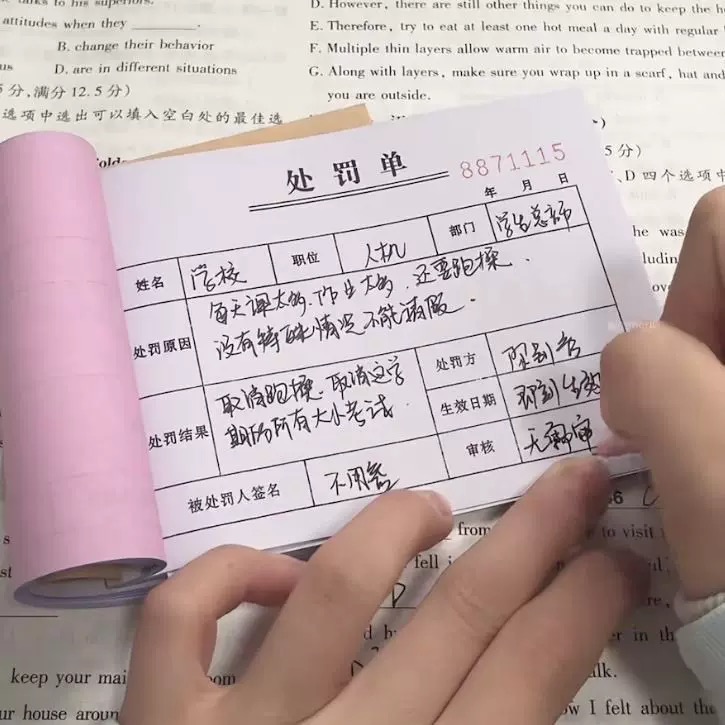 to his superiors.
attitudes when they
B. change their behavior
D. are in different situations
分,满分 12.5 分)
选项中选出可以填入空白处的最佳选
D. However, there are still other things you can do to keep the
E. Therefore, try to eat at least one hot meal a day with regular
F. Multiple thin layers allow warm air to become trapped between
G. Along with layers, make sure you wrap up in a scarf, hat and
you are outside.
5 分)
、D 四个选项中
he was
处罚单
8871115
年 月 日
姓名 学校 职位 人机 部门
处罚原因 每天课太多、作业太多、还要跑操、
没有特殊情况不能请假。
处罚结果 取消跑操、取消这学
期所有大小考试
处罚方
生效日期 即刻生效
审核
被处罚人签名 不用签
from
to visit
fell i
er in th
keep your mai
alk.
ur house aroun
w I felt about the